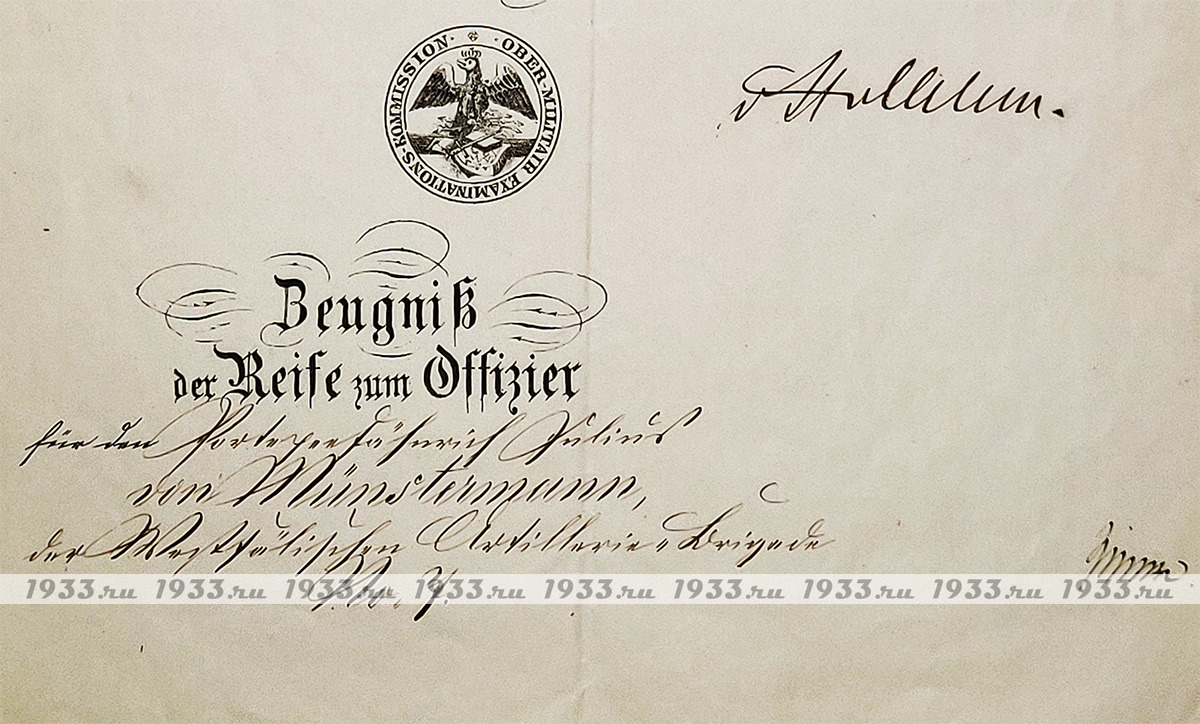 OBER-MILITAIR EXAMINATIONS-KOMMISSION
Zeugniß
der Reife zum Offizier
für den Portepeefähnrich Julius
von Münstermann,
der Westfälischen Artillerie-Brigade
No. 7.
1933.ru 1933.ru 1933.ru 1933.ru 1933.ru 1933.ru 1933.ru 1933.ru 1933.ru